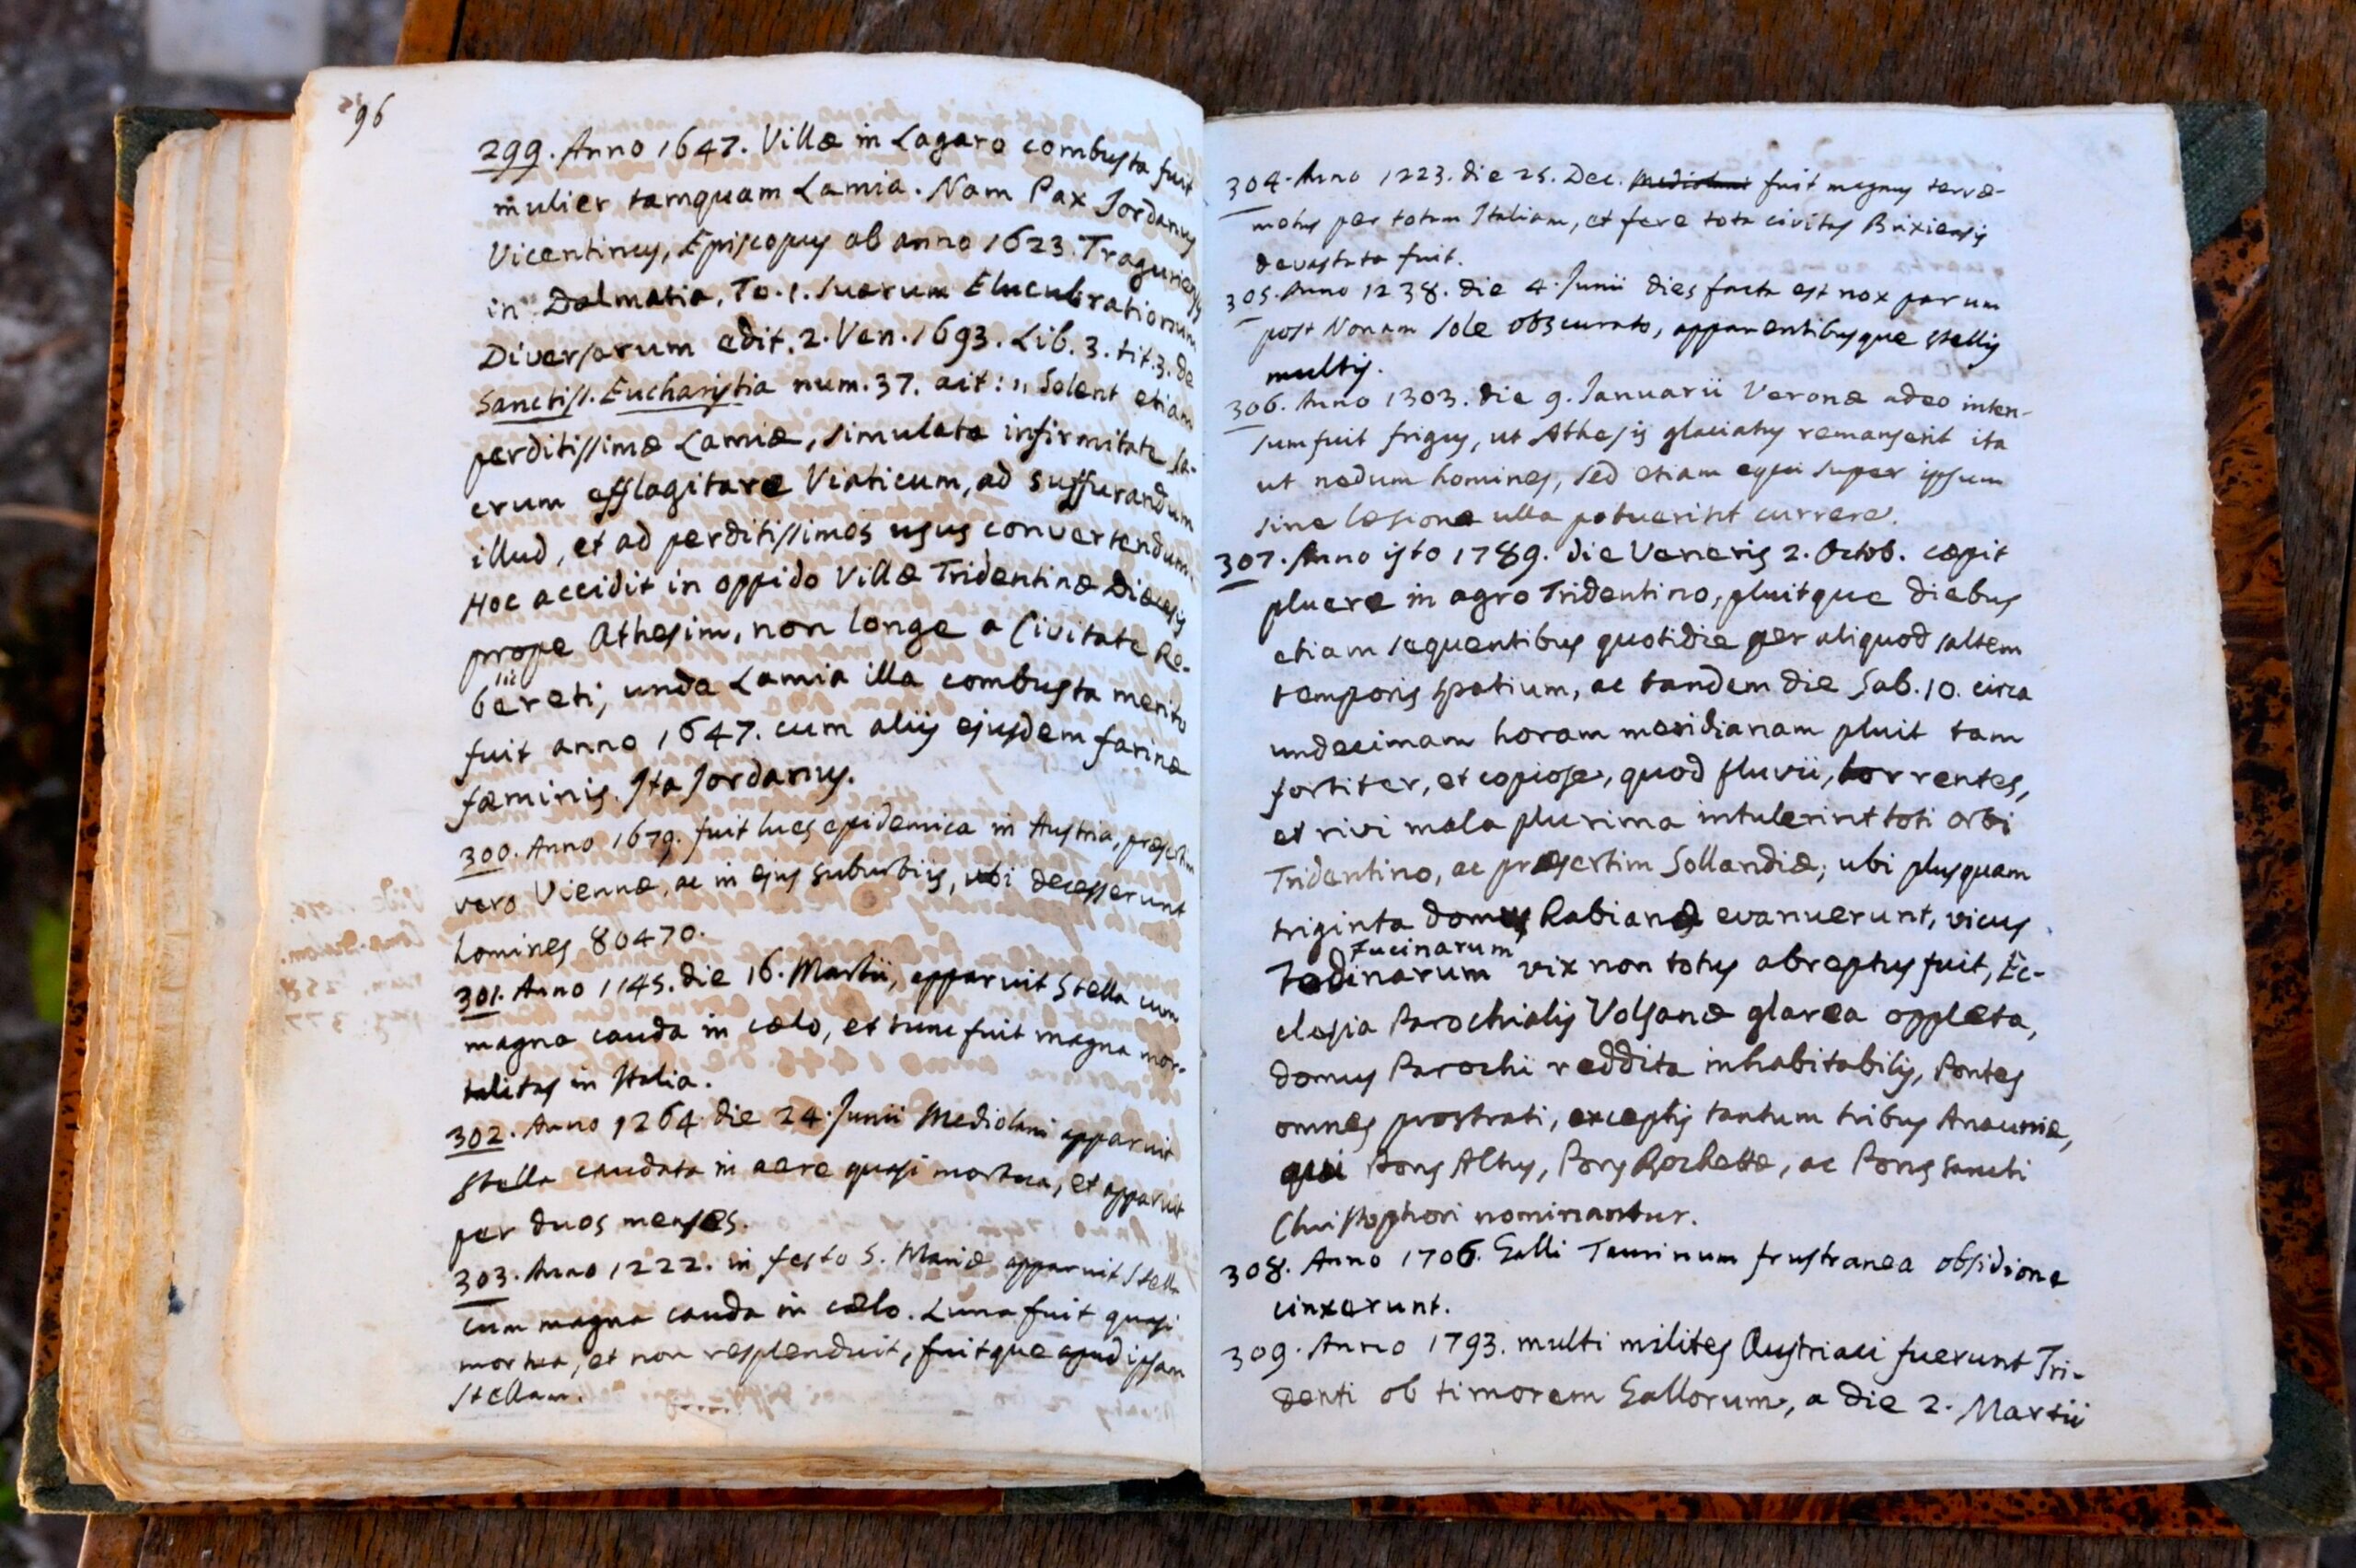 96
299. Anno 1647. Villæ in Lagaro combusta fuit
mulier tamquam Lamia. Nam Pax Jordanus
Vicentinus, Episcopus ab anno 1623. Traguriensis
in Dalmatia, To. 1. suarum Elucubrationum
Diversarum edit. 2. Ven. 1693. Lib. 3. tit. 3. de
Sanctiss. Eucharistia num. 37. ait: ,, Solent etiam
perditissimæ Lamiæ, simulata infirmitate sa-
crum efflagitare Viaticum, ad suffurandum
illud, et ad perditissimos usus convertendum.
Hoc accidit in oppido Villæ Tridentinæ Diœcesis
prope Athesim, non longe a Civitate Ro-
bereti; unde Lamia illa combusta merito
fuit anno 1647. cum aliis ejusdem farinæ
fæminis. Ita Jordanus.
300. Anno 1679. fuit lues epidemica in Austria, præsertim
vero Viennæ, ac in ejus suburbiis, ubi decesserunt
homines 80470.
301. Anno 1145. die 16. Martii, apparuit Stella cum
magna cauda in cælo, et tunc fuit magna mor-
talitas in Italia.
302. Anno 1264. die 24. Junii Mediolani apparuit
Stella caudata in aere quasi mortua, et apparuit
per duos menses.
303. Anno 1222. in festo S. Mariæ apparuit Stella
cum magna cauda in cælo. Luna fuit quasi
mortua, et non resplenduit, fuitque apud ipsam
stellam.
304. Anno 1223. die 25. Dec. Mediolani fuit magnus terræ-
motus per totam Italiam, et fere tota civitas Brixiensis
devastata fuit.
305. Anno 1238. die 4. Junii dies facta est nox parum
post Nonam sole obscurato, apparentibusque stellis
multis.
306. Anno 1303. die 9. Januarii Veronæ adeo inten-
sum fuit frigus, ut Athesis glaciatus remanserit ita
ut nedum homines, sed etiam equi super ipsum
sine læsione ulla potuerint currere.
307. Anno isto 1789. die Veneris 2. Octob. cæpit
pluere in agro Tridentino, pluitque diebus
etiam sequentibus quotidie per aliquod saltem
temporis spatium, ac tandem die Sab. 10. circa
undecimam horam meridianam pluit tam
fortiter, et copiose, quod fluvii, torrentes,
et rivi mala plurima intulerint toti orbi
Tridentino, ac præsertim Sollandiæ; ubi plusquam
triginta domus Rabianæ evanuerunt, vicus
Fucinarum
vix non totus abreptus fuit, Ec-
clesia Parochialis Volsanæ glarea oppleta,
domus Parochi reddita inhabitabilis, Pontes
omnes prostrati, exceptis tantum tribus Anauniæ,
qui Pons Altus, Pons Rochettæ, ac Pons Sancti
Christophori nominantur.
308. Anno 1706. Galli Taurinum frustranea obsidione
cinxerunt.
309. Anno 1793. multi milites Austriaci fuerunt Tri-
denti ob timorem Gallorum, a die 2. Martii